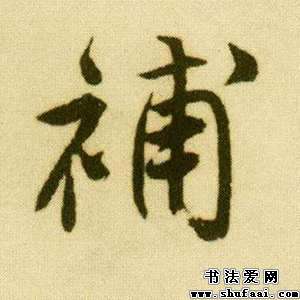 補
书法爱网
www.shufaai.com